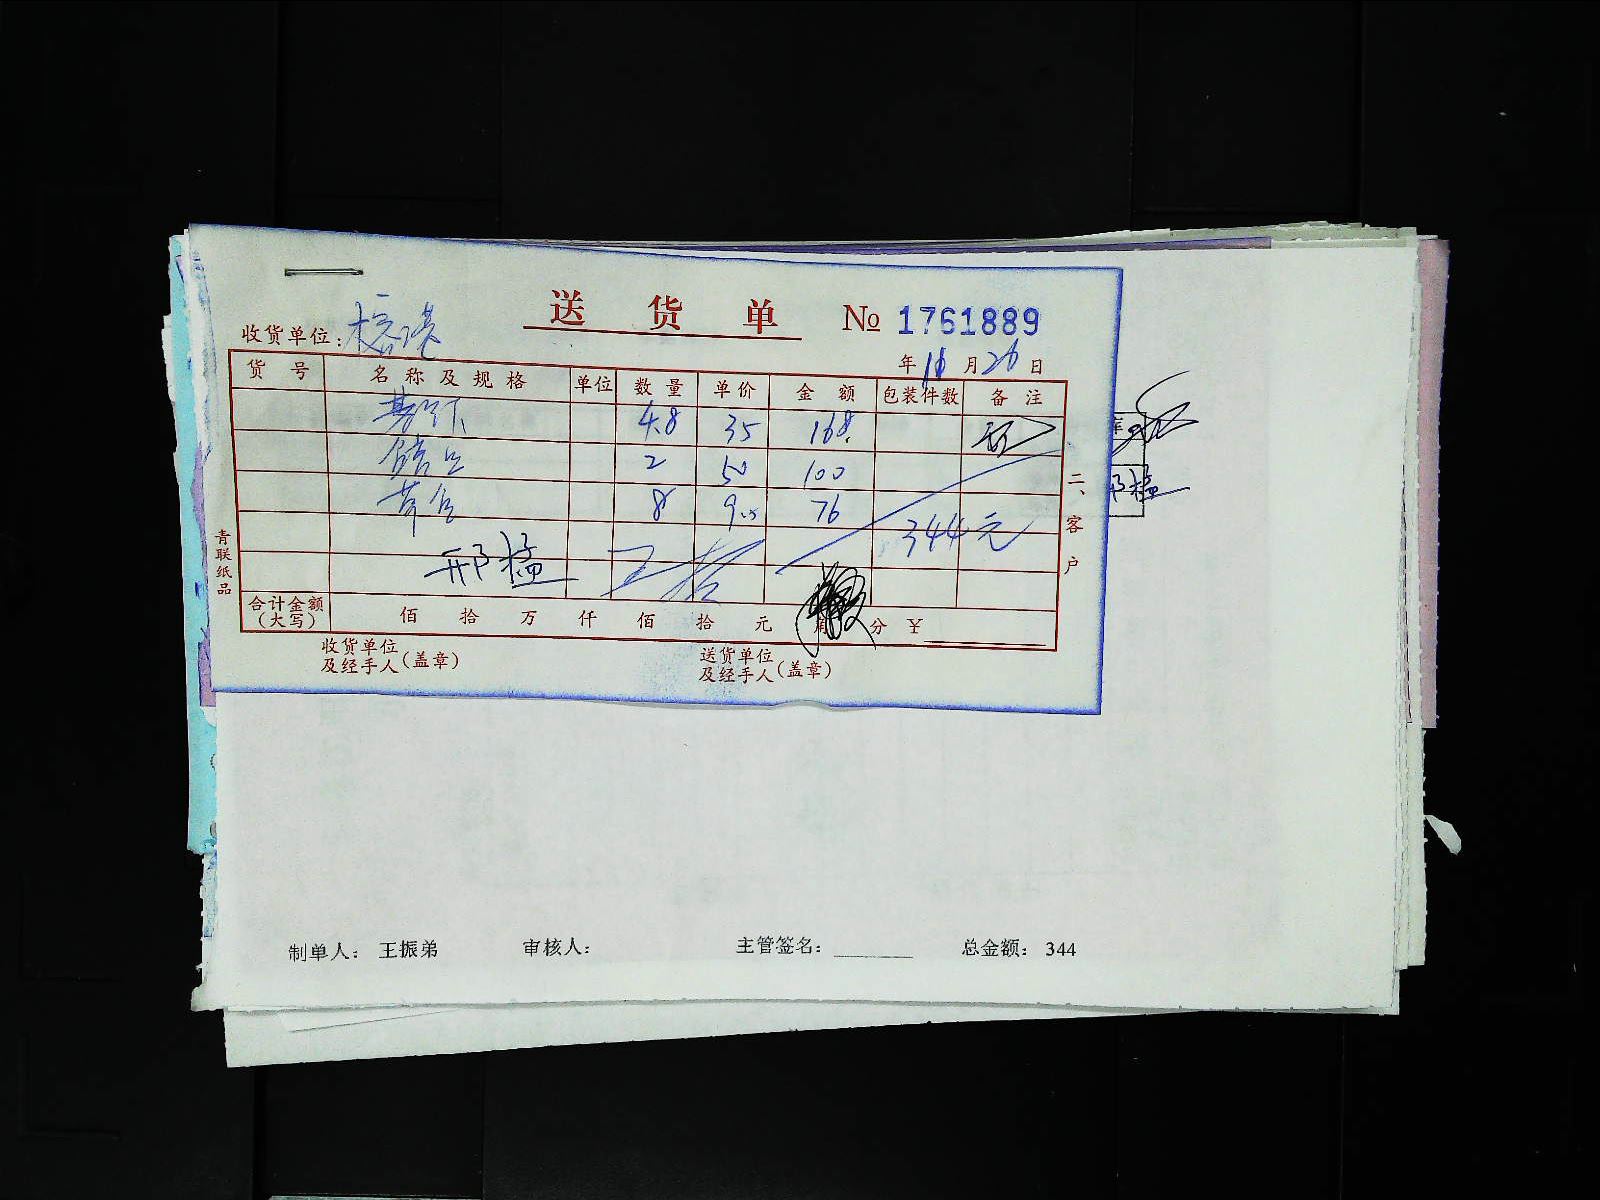 送货单 № 1761889
收货单位：
年 11 月 26 日
货号 名称及规格 单位 数量 单价 金额 包装件数 备注
基围虾 4.8 35 168
2 50 100
8 9.5 76
344元
邢猛
合计金额（大写） 佰 拾 万 仟 佰 拾 元 角 分 ￥
收货单位及经手人（盖章） 送货单位及经手人（盖章）
二、客户
青联纸品
邢猛
制单人： 王振弟 审核人： 主管签名： 总金额： 344